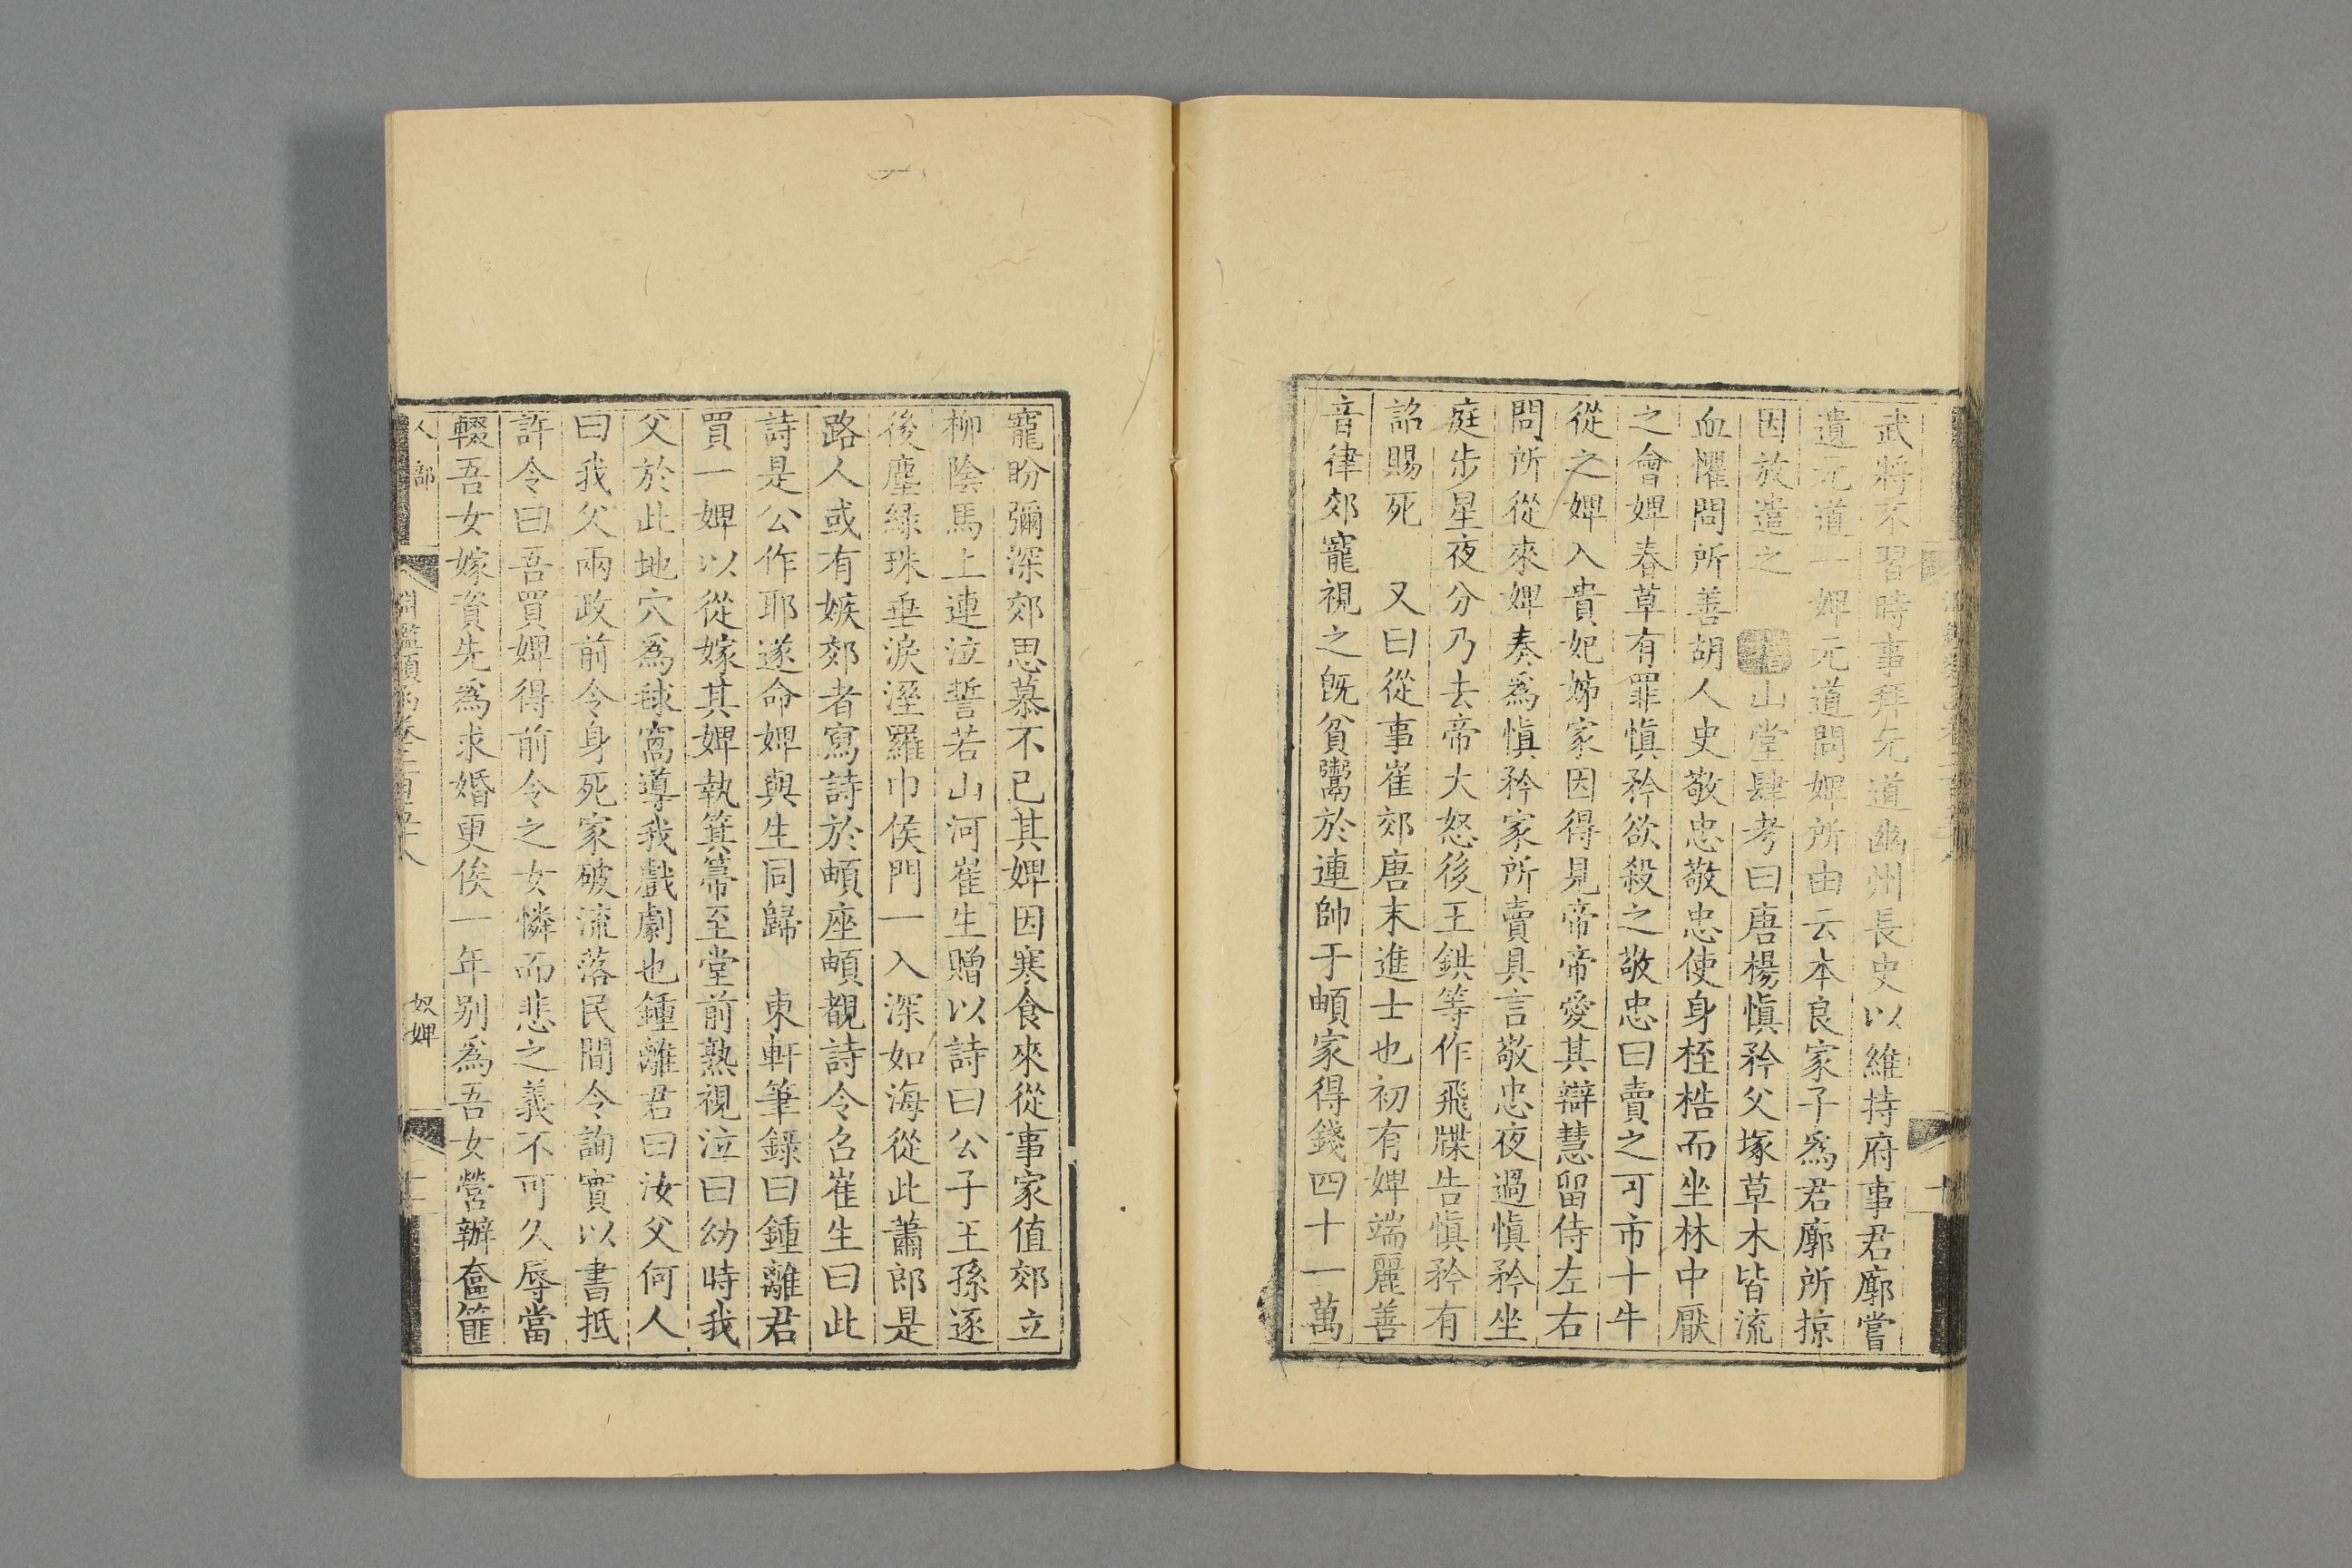 武將不習時事拜元道幽州長史以維持府事君廓嘗
遺元道一婢元道問婢所由云本良家子爲君廓所掠
因放遣之 增山堂肆考曰唐楊愼矜父塚草木皆流
血懼問所善胡人史敬忠敬忠使身桎梏而坐林中厭
之會婢春草有罪愼矜欲殺之敬忠曰賣之可市十牛
從之婢入貴妃姊家因得見帝帝愛其辯慧留侍左右
問所從來婢奏爲愼矜家所賣具言敬忠夜過愼矜坐
庭步星夜分乃去帝大怒後王鉷等作飛牒告愼矜有
詔賜死 又曰從事崔郊唐末進士也初有婢端麗善
音律郊寵視之既貧鬻於連帥于頔家得錢四十一萬
寵盼彌深郊思慕不已其婢因寒食來從事家值郊立
柳陰馬上連泣誓若山河崔生贈以詩曰公子王孫逐
後塵緑珠垂淚溼羅巾侯門一入深如海從此蕭郎是
路人或有嫉郊者寫詩於頔座頔覩詩令召崔生曰此
詩是公作耶遂命婢與生同歸 東軒筆錄曰鍾離君
買一婢以從嫁其婢執箕箒至堂前熟視泣曰幼時我
父於此地穴爲毬窩導我戲劇也鍾離君曰汝父何人
曰我父兩政前令身死家破流落民間令詢實以書抵
許令曰吾買婢得前令之女憐而悲之義不可久辱當
輟吾女嫁資先爲求婚更俟一年别爲吾女營辦奩篚
人部
淵鑑類函卷二百五十八
奴婢
十二